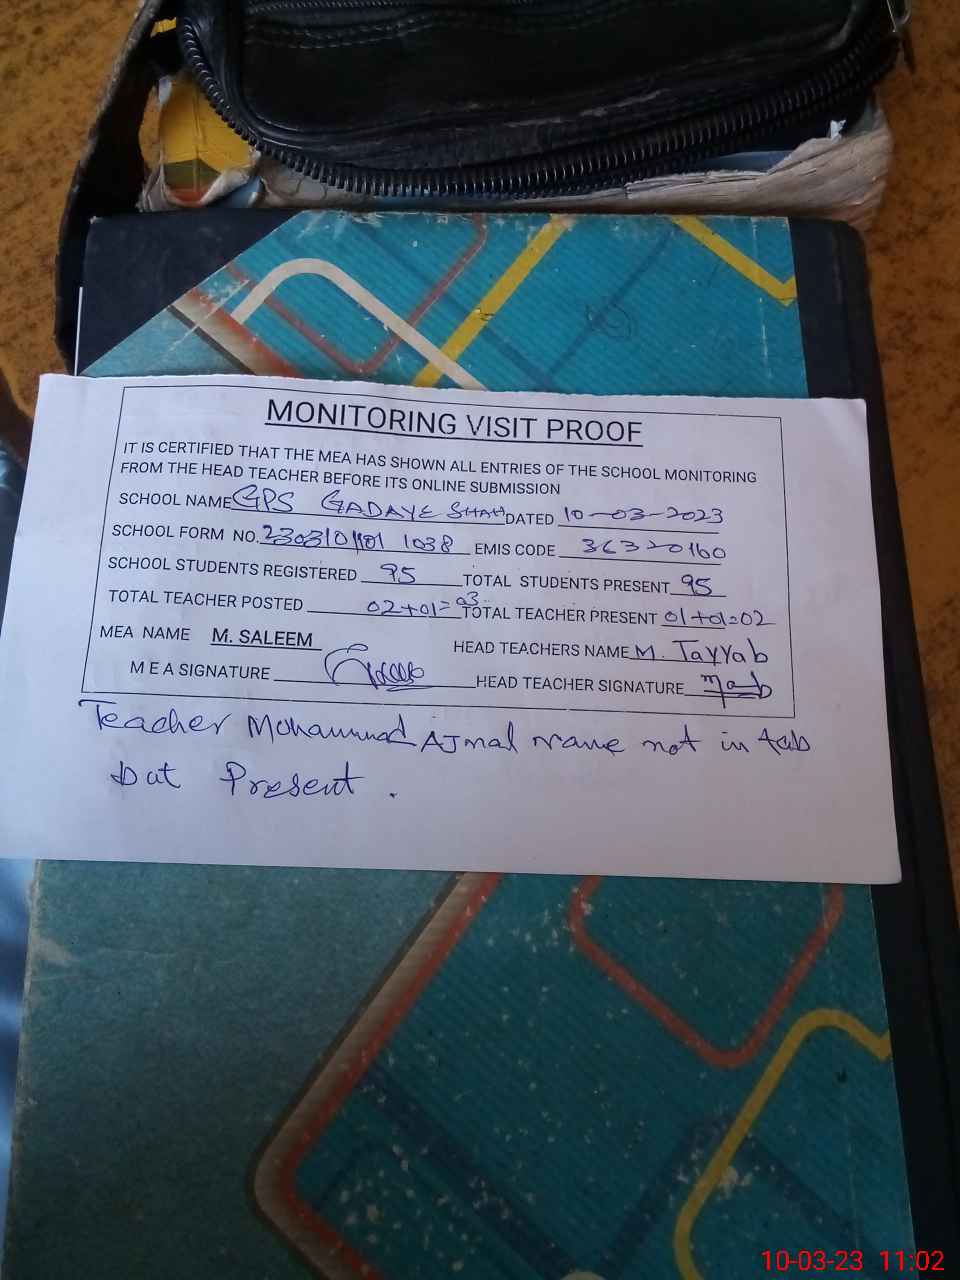 MONITORING VISIT PROOF
IT IS CERTIFIED THAT THE MEA HAS SHOWN ALL ENTRIES OF THE SCHOOL MONITORING
FROM THE HEAD TEACHER BEFORE ITS ONLINE SUBMISSION
SCHOOL NAME GPS GADAYE SHAH DATED 10-03-2023
SCHOOL FORM NO. EMIS CODE 36320160
SCHOOL STUDENTS REGISTERED 95 TOTAL STUDENTS PRESENT 95
TOTAL TEACHER POSTED 02+01=03 TOTAL TEACHER PRESENT 01+01=02
MEA NAME M. SALEEM HEAD TEACHERS NAME M. Tayyab
M E A SIGNATURE HEAD TEACHER SIGNATURE
Teacher Mohammad Ajmal name not in tab
but Present.
10-03-23 11:02